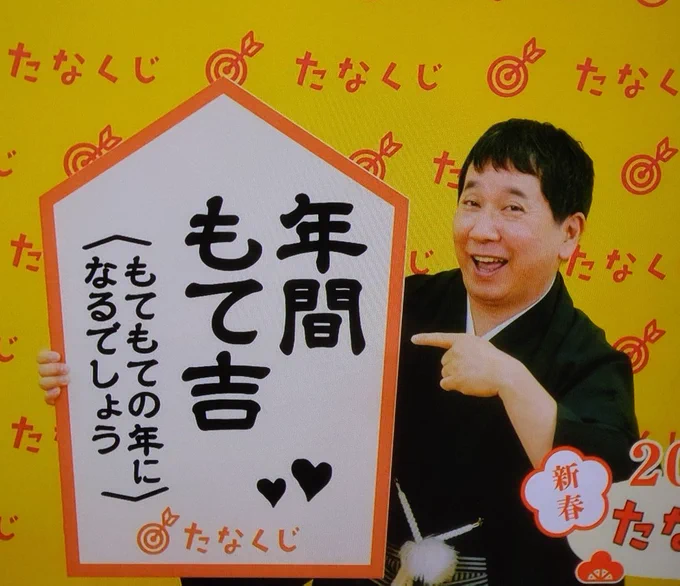 たなくじ
たなくじ
たなく
年間
もて吉
〈もてもての年に
なるでしょう〉
たなくじ
新春
20
たな